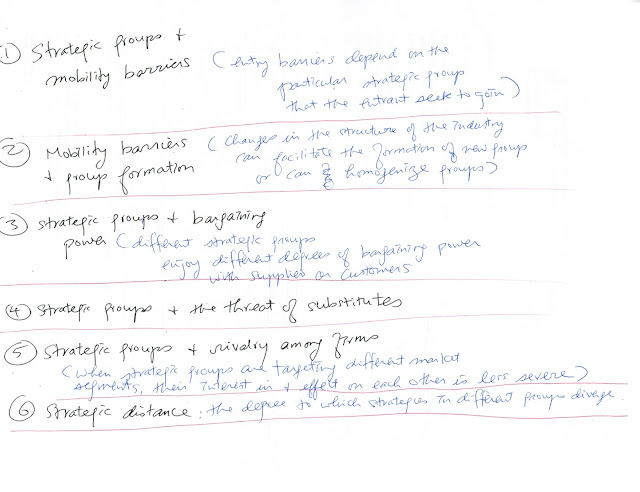 ① Strategic groups + (entry barriers depend on the
mobility barriers particular strategic group
that the entrant seek to goin)
② Mobility barriers (changes in the structure of the industry
+ group formation can facilitate the formation of new group
or can homogenize groups)
③ strategic groups + bargaining
power (different strategic groups
enjoy different degrees of bargaining power
with supplies or customers
④ Strategic groups + the threat of substitutes
⑤ Strategic groups + rivalry among firms
(when strategic groups are targeting different market
segments, their interest in + effect on each other is less severe)
⑥ Strategic distance: the degree to which strategies in different groups diverge.